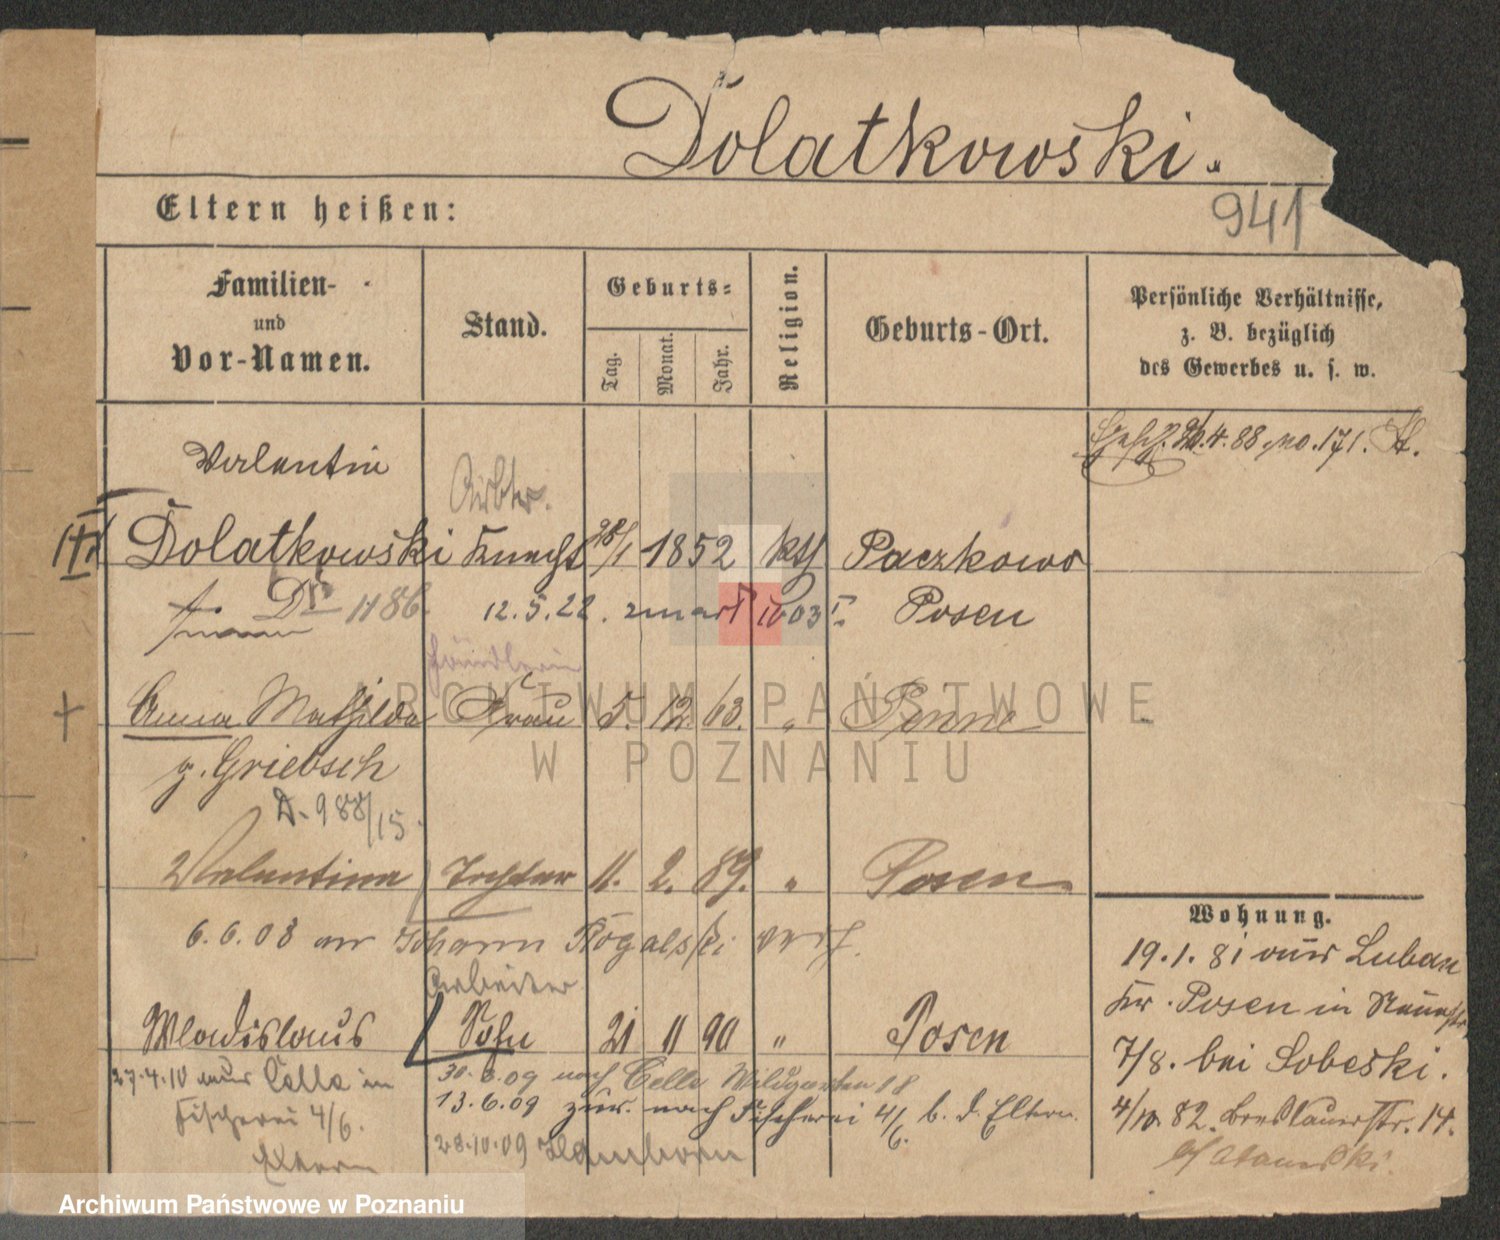 Dolatkowski.
941
Eltern heißen:
Familien-
und
Vor-Namen.
Stand.
Geburts-
Tag.
Monat.
Jahr.
Religion.
Geburts-Ort.
Persönliche Verhältnisse,
z. B. bezüglich
des Gewerbes u. s. w.
4.88. no. 171.
Valentin
Arbtr.
Dolatkowski Knecht 28/1 1852 kth Paczkowo
Dr 1186. 12.5.22. zmarł 1003 Posen
Händlerin
Anna Mathilde Frau 5. 12. 63. " Penne
g. Griebsch
D. 988/15.
Valentina Tochter 11. 2. 89. " Posen
6.6.08 an Johann Rogalski verh.
Arbeiter
Wladislaus Sohn 21 11 90 " Posen
27.4.10 aus Celle in
Fischerei 4/6.
Eltern
30.6.09 nach Celle Wildgarten 18
13.6.09 zur. nach Fischerei 4/6. b. d. Eltern.
28.10.09 Hamborn
Wohnung.
19.1.81 aus Luban
Kr. Posen in
7/8. bei Sobeski.
4/10. 82. Breslauerstr. 14.
ARCHIWUM PAŃSTWOWE
W POZNANIU
Archiwum Państwowe w Poznaniu